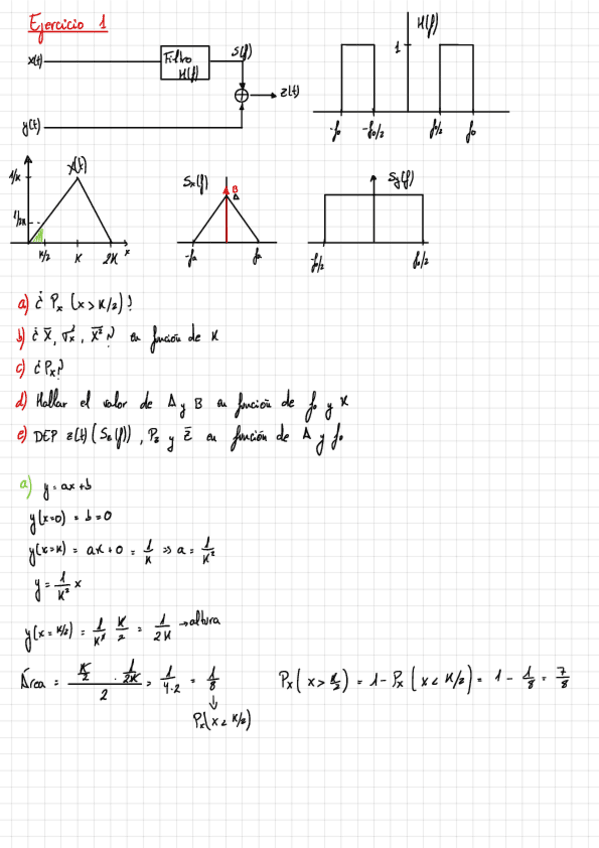 Ejercicio 1
x(t)
Filtro
H(f)
S(f)
z(t)
y(t)
H(f)
1
-f₀ -f₀/2 f₀/2 f₀
1/K
1/2K
K/2 K 2K x
Sx(f)
B
A
Sy(f)
-f₀/2 f₀/2
a) ¿ Px (x > K/2)?
b) ¿ x̄, σx², x̄² ? en función de K
c) ¿Px?
d) Hallar el valor de A y B en función de f₀ y K
e) DEP z(t) (Sz(f)), Pz y z̄ en función de A y f₀
a) y = ax + b
y(x=0) = b = 0
y(x=K) = aK + 0 = 1/K ⇒ a = 1/K²
y = 1/K² x
y(x = K/2) = 1/K² K/2 = 1/2K → altura
Área = (K/2 · 1/2K)/2 = 1/4·2 = 1/8 Px(x > K/2) = 1 - Px(x < K/2) = 1 - 1/8 = 7/8
↓
Px(x < K/2)